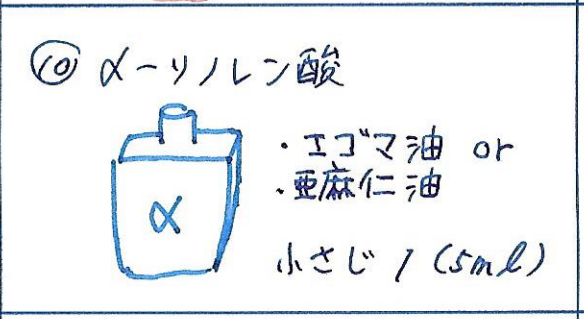 ⑩ α-リノレン酸
α
・エゴマ油 or
・亜麻仁油
小さじ1(5ml)